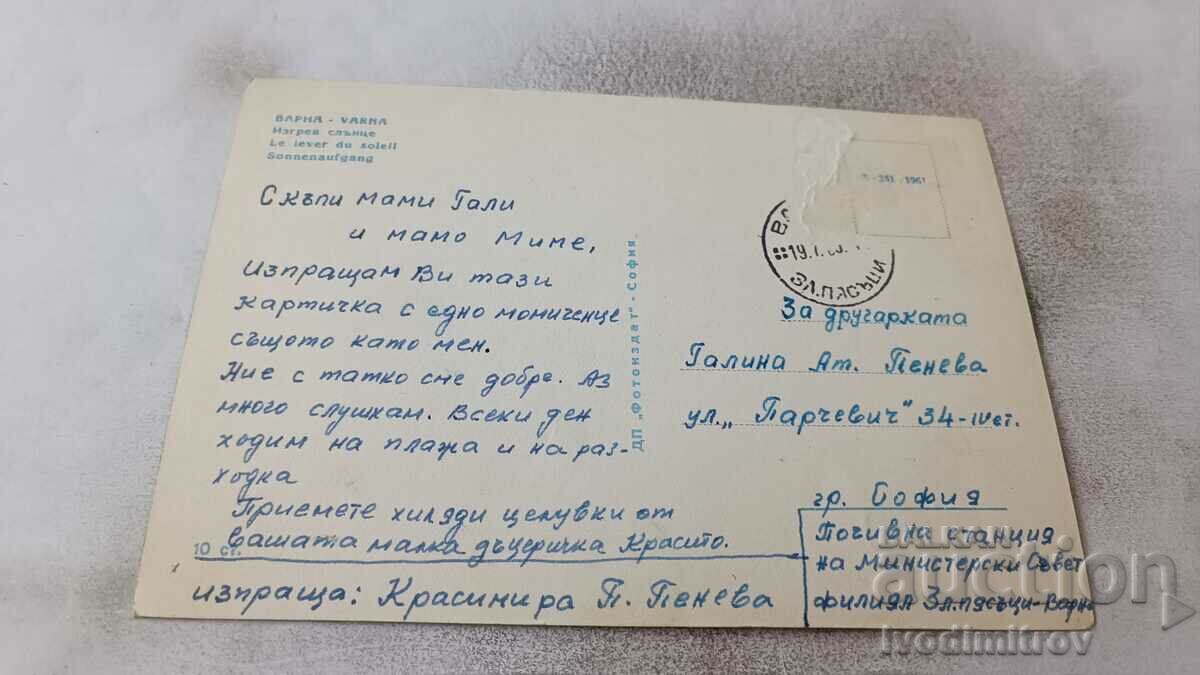 ВАРНА - VARNA
Изгрев слънце
Le lever du soleil
Sonnenaufgang
Скъпи мами Гали
и мамо Миме,
Изпращам Ви тази
картичка с едно момиченце
същото като мен.
Ние с татко сме добре. Аз
много слушкам. Всеки ден
ходим на плажа и на раз-
ходка
Приемете хиляди целувки от
вашата малка дъщеричка Красито.
10 ст.
изпраща: Красимира П. Пенева
ДП „Фотоиздат" - София.
1961
19.7.
ЗЛ.ПЯСЪЦИ
За другарката
Галина Ат. Пенева
ул. „Парчевич" 34-IV ст.
гр. София
Почивна станция
на Министерски Съвет
филиал Зл.пясъци-Варна
BALKAN
auction
ivodimitrov